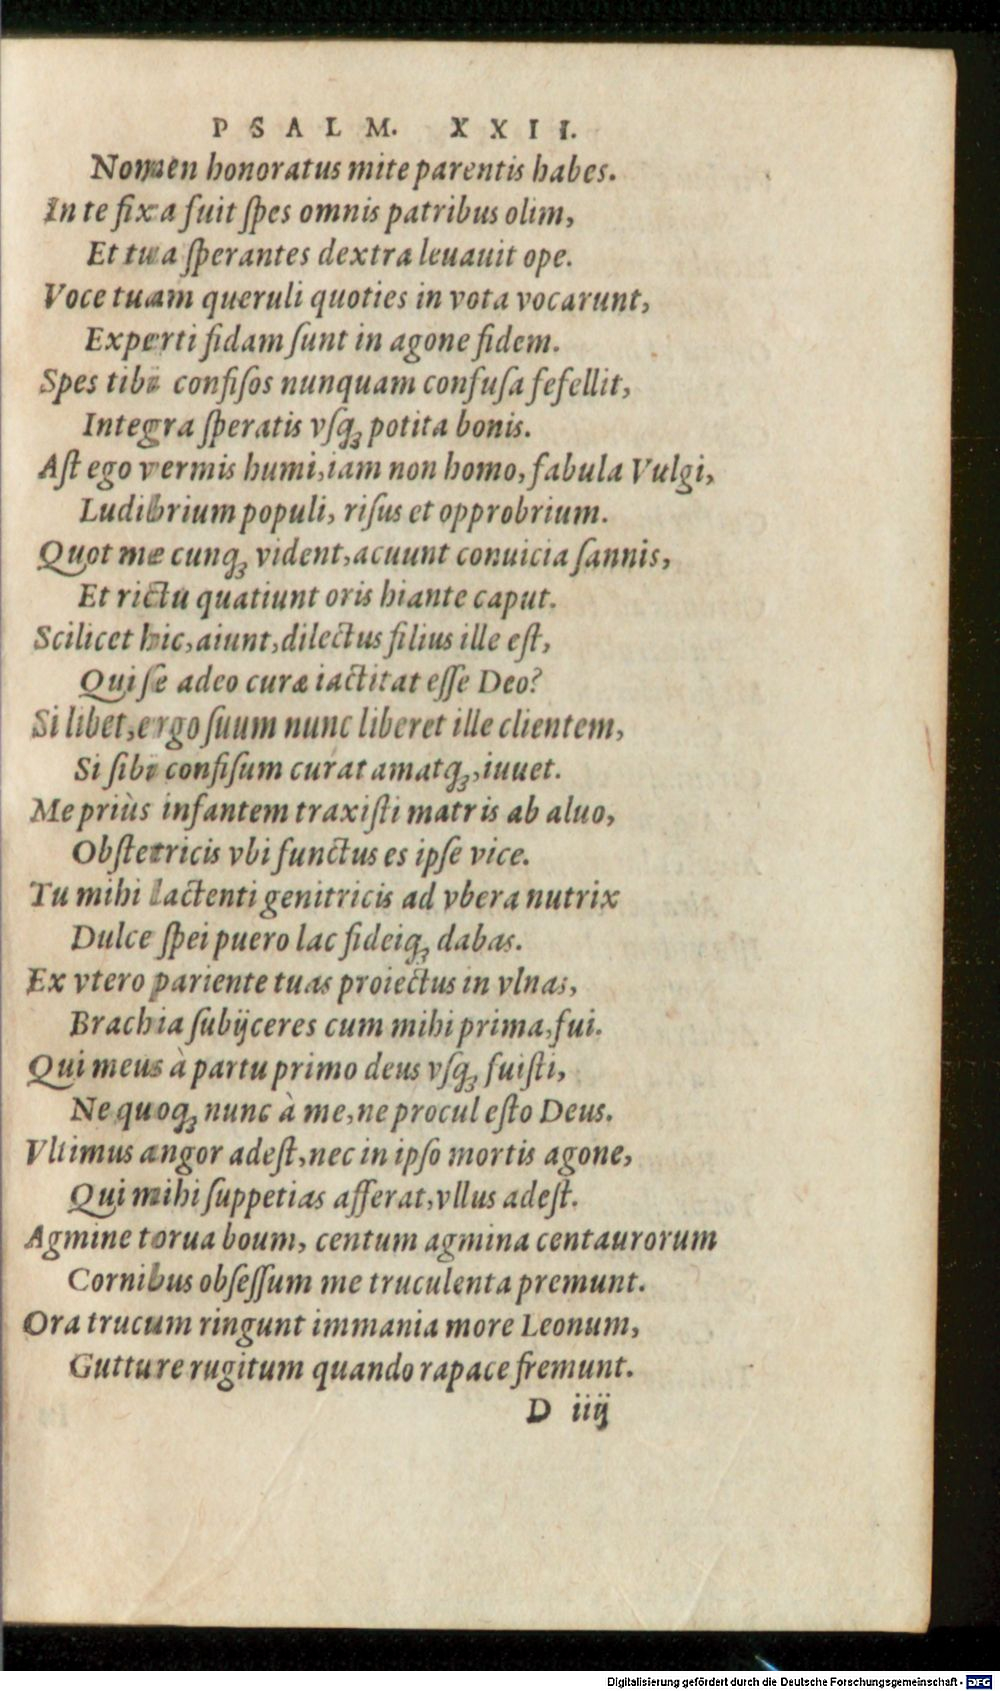 PSALM. XXII.
Nomen honoratus mite parentis habes.
In te fixa fuit ſpes omnis patribus olim,
Et tua ſperantes dextra leuauit ope.
Voce tuam queruli quoties in vota vocarunt,
Experti fidam ſunt in agone fidem.
Spes tibi confiſos nunquam confuſa fefellit,
Integra ſperatis vſqꝫ potita bonis.
Aſt ego vermis humi, iam non homo, fabula Vulgi,
Ludibrium populi, riſus et opprobrium.
Quot me cunqꝫ vident, acuunt conuicia ſannis,
Et rictu quatiunt oris hiante caput.
Scilicet hic, aiunt, dilectus filius ille eſt,
Qui ſe adeo curæ iactitat eſſe Deo?
Si libet, ergo ſuum nunc liberet ille clientem,
Si ſibi confiſum curat amatqꝫ, iuuet.
Me priùs infantem traxiſti matris ab aluo,
Obſtetricis vbi functus es ipſe vice.
Tu mihi lactenti genitricis ad vbera nutrix
Dulce ſpei puero lac fideiqꝫ dabas.
Ex vtero pariente tuas proiectus in vlnas,
Brachia ſubijceres cum mihi prima, fui.
Qui meus à partu primo deus vſqꝫ fuiſti,
Ne quoqꝫ nunc à me, ne procul eſto Deus.
Vltimus angor adeſt, nec in ipſo mortis agone,
Qui mihi ſuppetias afferat, vllus adeſt.
Agmine torua boum, centum agmina centaurorum
Cornibus obſeſſum me truculenta premunt.
Ora trucum ringunt immania more Leonum,
Gutture rugitum quando rapace fremunt.
D iiij
Digitalisierung gefördert durch die Deutsche Forschungsgemeinschaft - DFG